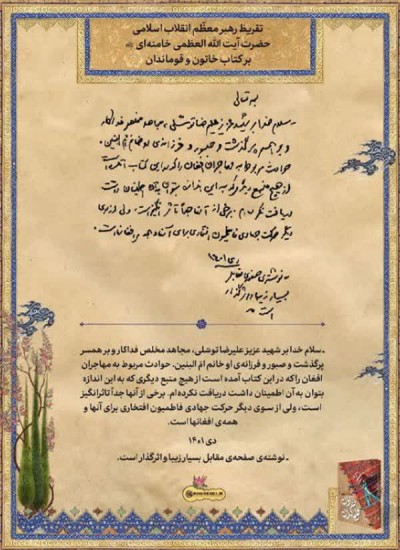 تقریظ رهبر معظّم انقلاب اسلامی
حضرت آیت الله العظمی خامنه‌ای
بر کتاب خاتون و قوماندان
بسمه تعالی
سلام خدا بر شهید عزیز علیرضا توسّلی، مجاهد مخلص فداکار
و بر همسر پرگذشت و صبور و فرزانه‌ی او خانم امّ البنین.
حوادث مربوط به مهاجران افغان را که در این کتاب آمده است
از هیچ منبع دیگری که به این اندازه بتوان به آن اطمینان داشت
دریافت نکرده‌ام. برخی از آنها جداً تأثرانگیز است، ولی از سوی
دیگر حرکت جهادی فاطمیون افتخاری برای آنها و همه‌ی افغانها است.
دی ۱۴۰۱
- نوشته‌ی صفحه‌ی مقابل
بسیار زیبا و اثرگذار
است
ـ سلام خدا بر شهید عزیز علیرضا توسّلی، مجاهد مخلص فداکار و بر همسر
پرگذشت و صبور و فرزانه‌ی او خانم امّ البنین. حوادث مربوط به مهاجران
افغان را که در این کتاب آمده است از هیچ منبع دیگری که به این اندازه
بتوان به آن اطمینان داشت دریافت نکرده‌ام. برخی از آنها جداً تأثرانگیز
است، ولی از سوی دیگر حرکت جهادی فاطمیون افتخاری برای آنها و
همه‌ی افغانها است.
دی ۱۴۰۱
ـ نوشته‌ی صفحه‌ی مقابل بسیار زیبا و اثرگذار است.